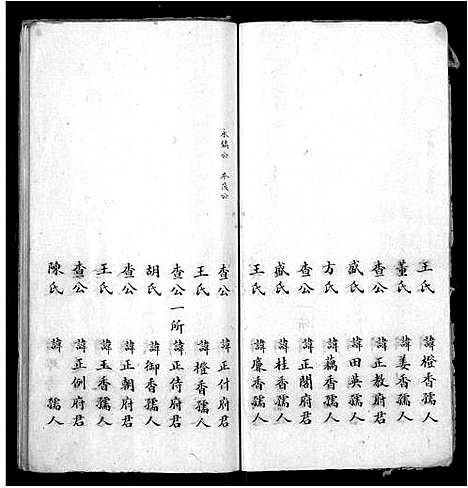 王氏 諱橙香孺人
董氏 諱姜香孺人
查公 諱正教府君
戚氏 諱田英孺人
方氏 諱藕香孺人
查公 諱正閣府君
戚氏 諱桂香孺人
王氏 諱廉香孺人
永鎬公 本茂公
查公 諱正付府君
王氏 諱橙香孺人
查公一所 諱正侍府君
胡氏 諱御香孺人
查公 諱正朝府君
王氏 諱玉香孺人
查公 諱正例府君
陳氏 諱 孺人